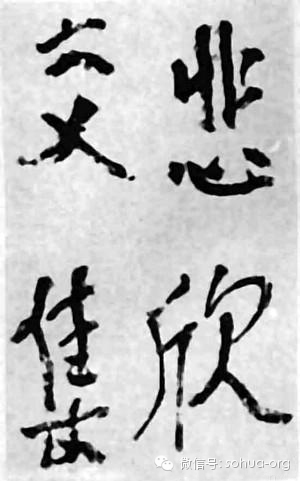 悲欣
交集
微信号: sohua-org